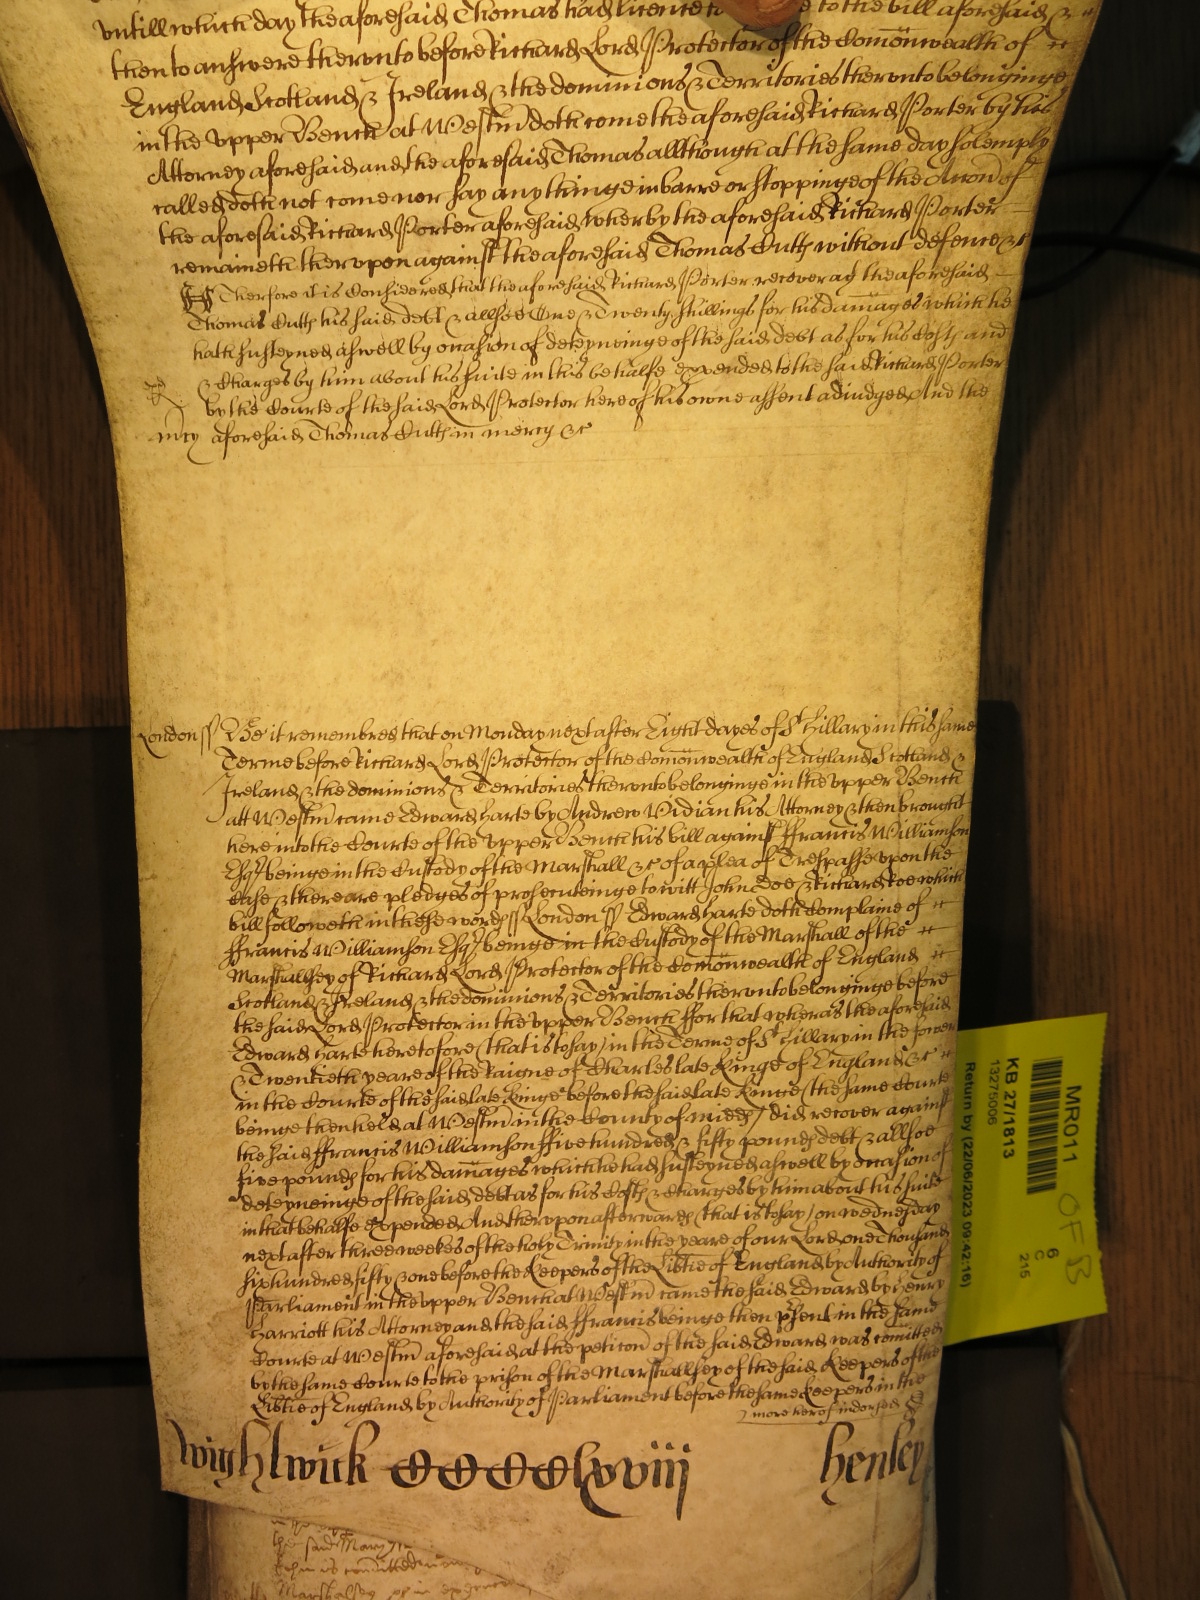 untill which day the aforesaid Thomas had licence to e to the bill aforesaid &
then to answere thervnto before Richard Lord Protector of the Comōnwealth of
England Scotland & Ireland & the dominions & Territories thervnto belonginge
in the vpper Bench at Westm̄ doth come the aforesaid Richard Porter by his
Attorney aforesaid and the aforesaid Thomas allthough at the same day solemply
called doth not come nor say any thinge in barre or stoppinge of the Accōn of
the aforesaid Richard Porter aforesaid wherby the aforesaid Richard Porter
remaineth thervpon against the aforesaid Thomas Cutts without defence &c
Therfore it is Considered that the aforesaid Richard Porter recover ag the aforesaid
Thomas Cutts his said debt & allsoe One & Twenty shillings for his damages which he
hath susteyned aswell by occasion of deteyneinge of the said debt as for his Costs and
& Charges by him about his suite in this behalfe expended to the said Richard Porter
by the Courte of the said Lord Protector here of his owne assent adiudged And the
mcy aforesaid Thomas Cutts in mercy &c
London ss Be it remembred that on Monday next after Eight dayes of St Hillary in this same
Terme before Richard Lord Protector of the Comōnwealth of England Scotland &
Ireland & the dominions & Territories thervnto belonginge in the vpper Bench
att Westm̄ came Edward Harte by Andrew Vidian his Attorney & then brought
here into the Courte of the vpper Bench his bill against ffrancis Williamson
Esqr beinge in the Custody of the Marshall &c of a plea of Trespasse vpon the
Case & there are pledges of prosecuteinge to witt John Doe & Richard Roe which
bill followeth in these words ss London ss Edward Harte doth Complaine of
ffrancis Williamson Esqr beinge in the Custody of the Marshall of the
Marshallsey of Richard Lord Protector of the Comōnwealth of England
Scotland & Ireland & the dominions & Territories thervnto belonginge before
the said Lord Protector in the vpper Bench ffor that wheras the aforesaid
Edward Harte heretofore (that is to say) in the Terme of St Hillary in the fower
& Twentieth yeare of the Raigne of Charles late Kinge of England &c
in the Courte of the said late Kinge before the said late Kinge (the same Courte
beinge then held at Westm̄ in the County of Middx) did recover against
the said ffrancis Williamson ffive hundred & fifty pounds debt & allsoe
five pounds for his damages which he had susteyned aswell by occasion of
deteyneinge of the said debt as for his Costs & Charges by him about his suite
in that behalfe expended And thervpon afterwards (that is to say) on wednesday
next after three weekes of the holy Trinity in the yeare of our Lord one Thousand
six hundred fifty & one before the Keepers of the Libtie of England by Authority of
Parliament in the vpper Bench at Westm̄ came the said Edward by Henry
Harriott his Attorney and the said ffrancis beinge then p̄sent in the same
Courte at Westm̄ aforesaid at the peticōn of the said Edward was comitted
by the same Courte to the prison of the Marshallsey of the said Keepers of the
Libtie of England by Authority of Parliament before the same Keepers in the
more herof indorsed
Wightwick CCCClxviii henley
the said Mary
John is committed
Marshalsey
MR011
KB 27/1813
13275006
Return by (22/06/2023 09:42:16)
6
C
215
OF B